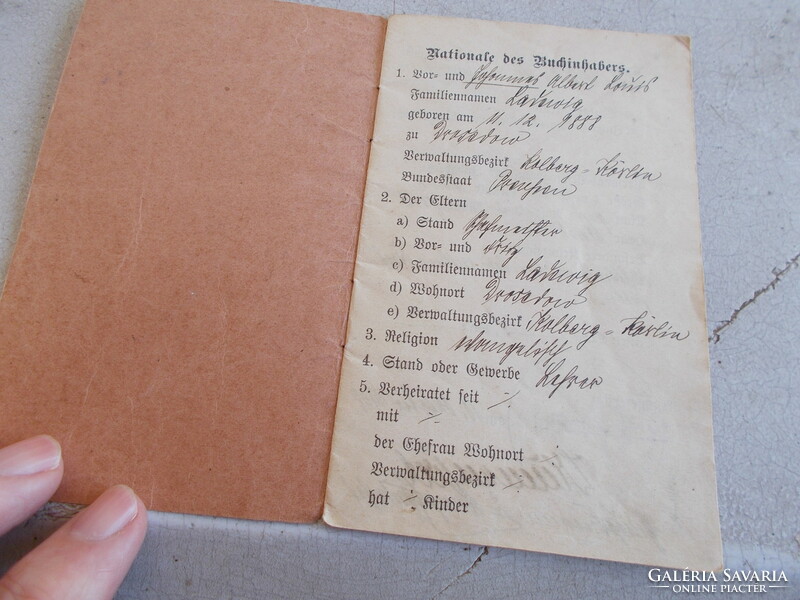 Nationale des Buchinhabers.
1. Vor- und Johannes Albert Louis
Familiennamen Ladwig
geboren am 11. 12. 1888
zu Drosedow
Verwaltungsbezirk Kolberg-Körlin
Bundesstaat Preussen
2. Der Eltern
a) Stand Hofmeister
b) Vor- und Fritz
c) Familiennamen Ladwig
d) Wohnort Drosedow
e) Verwaltungsbezirk Kolberg-Körlin
3. Religion evangelisch
4. Stand oder Gewerbe Lehrer
5. Verheiratet seit ·/.
mit ·/.
der Ehefrau Wohnort ·/.
Verwaltungsbezirk ·/.
hat ·/. Kinder
GALÉRIA SAVARIA
ONLINE PIACTÉR